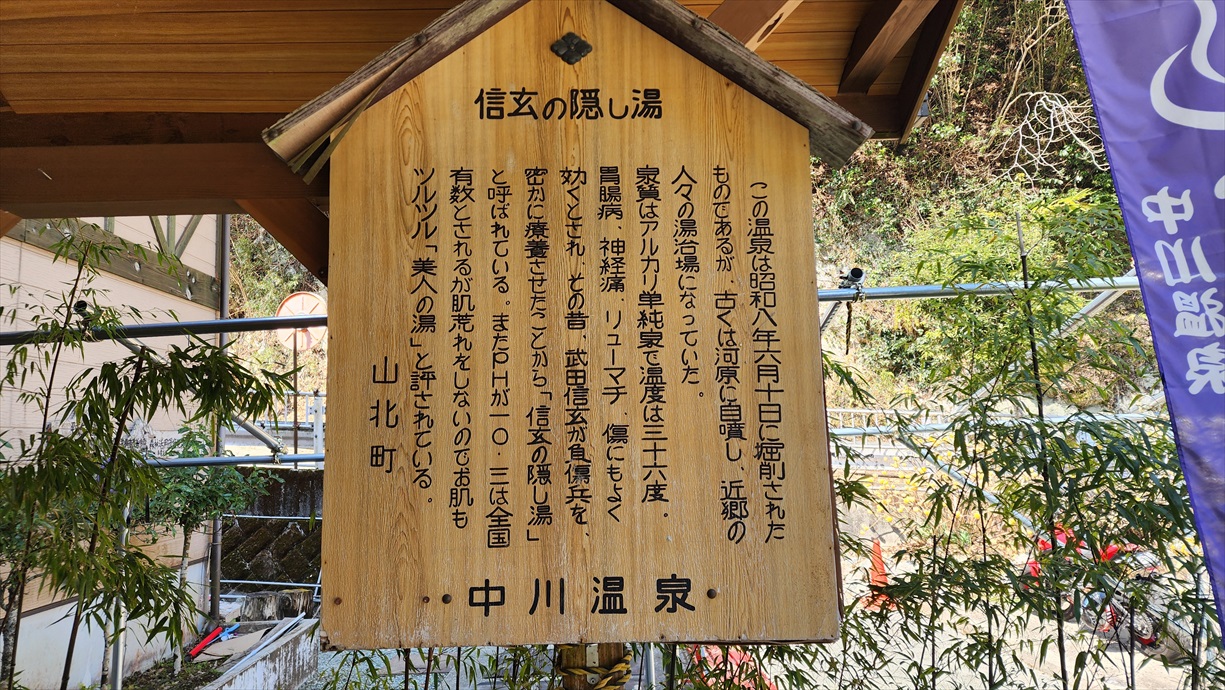 信玄の隠し湯
この温泉は昭和八年六月十日に堀削された
ものであるが、古くは河原に自噴し、近郷の
人々の湯治場になっていた。
泉質はアルカリ単純泉で温度は三十六度．
胃腸病、神経痛、リューマチ、傷にもよく
効くとされ、その昔、武田信玄が負傷兵を、
密かに療養させたことから「信玄の隠し湯」
と呼ばれている。またpHが一〇・三は全国
有数とされるが肌荒れをしないのでお肌も
ツルツル「美人の湯」と評されている。
山北町
中川温泉
中川温泉